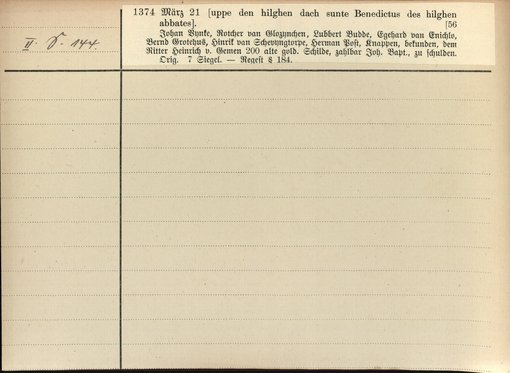 II. S. 144
1374 März 21 [uppe den hilghen dach sunte Benedictus des hilghen
abbates]. [56
Johan Vynke, Rotcher van Glozynchen, Lubbert Budde, Egehard van Enichlo,
Bernd Grotehus, Hinrik van Schevyngtorpe, Herman Post, Knappen, bekunden, dem
Ritter Heinrich v. Gemen 200 alte gold. Schilde, zahlbar Joh. Bapt., zu schulden.
Orig. 7 Siegel. — Regest § 184.